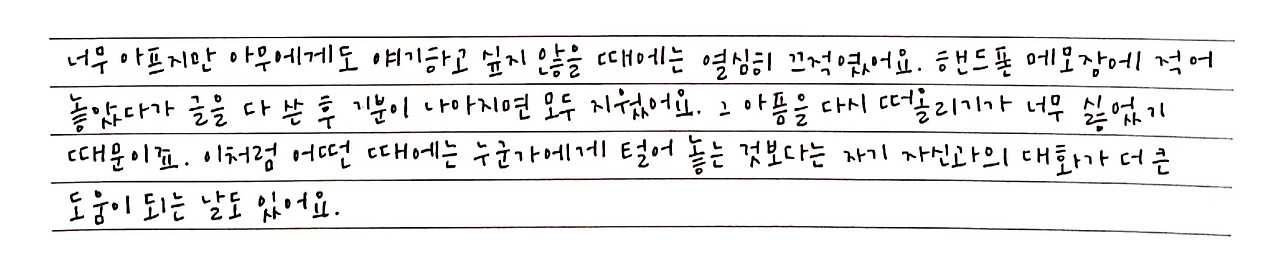 너무 아프지만 아무에게도 얘기하고 싶지 않을 때에는 열심히 끄적였어요. 핸드폰 메모장에 적어
놓았다가 글을 다 쓴 후 기분이 나아지면 모두 지웠어요. 그 아픔을 다시 떠올리기가 너무 싫었기
때문이죠. 이처럼 어떤 때에는 누군가에게 털어 놓는 것보다는 자기 자신과의 대화가 더 큰
도움이 되는 날도 있어요.